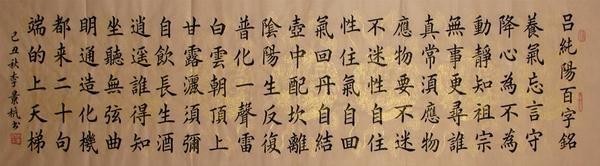 呂純陽百字銘
養氣忘言守
降心為不為
動靜知祖宗
無事更尋誰
真常須應物
應物要不迷
不迷性自住
性住氣自回
氣回丹自結
壺中配坎離
陰陽生反復
普化一聲雷
白雲朝頂上
甘露灑須彌
自飲長生酒
逍遥誰得知
坐聽無弦曲
明通造化機
都來二十句
端的上天梯
己丑秋李景書